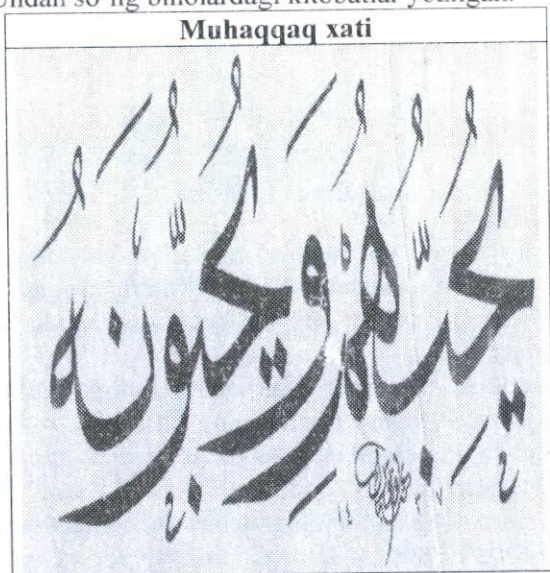 Undan so‘ng binolardagi kitobatlar yozilgan.
Muhaqqaq xati
يُحِبُّهُمْ وَيُحِبُّونَهُ